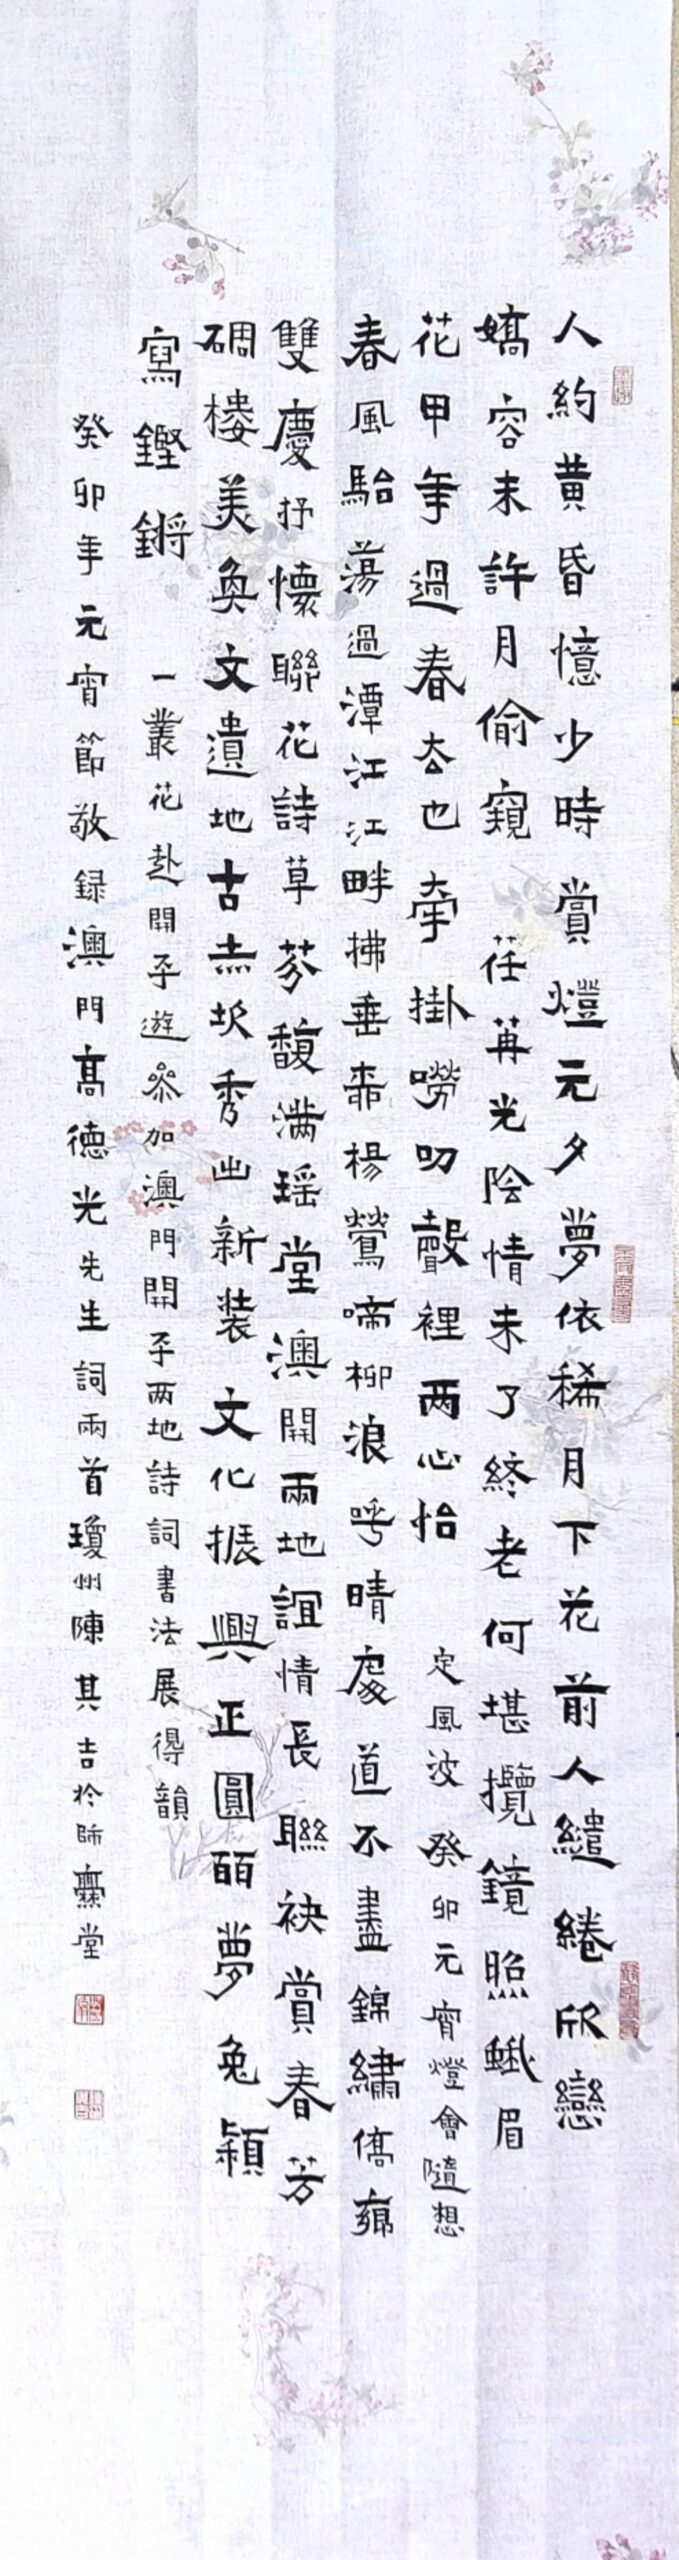 人約黄昏憶少時賞燈元夕夢依稀月下花前人繾綣欣戀
嬌容未許月偷窺荏苒光陰情未了終老何堪攬鏡照蛾眉
花甲年過春去也牽掛嘮叨聲裡两心怡 定風波 癸卯元宵燈會隨想
春風駘蕩過潭江江畔拂垂楊鶯啼柳浪呼晴處道不盡錦繡僑鄉
雙慶抒懷聯花詩草芬馥满瑶堂澳開兩地誼情長聯袂賞春芳
碉楼美奂文遺地古赤坎秀出新装文化振興正圓百夢兔穎
寫鏗鏘 一叢花赴開平遊參加澳門開平两地詩詞書法展得韻
癸卯年元宵節敬録澳門高德光先生詞兩首瓊州陳其吉於師爨堂